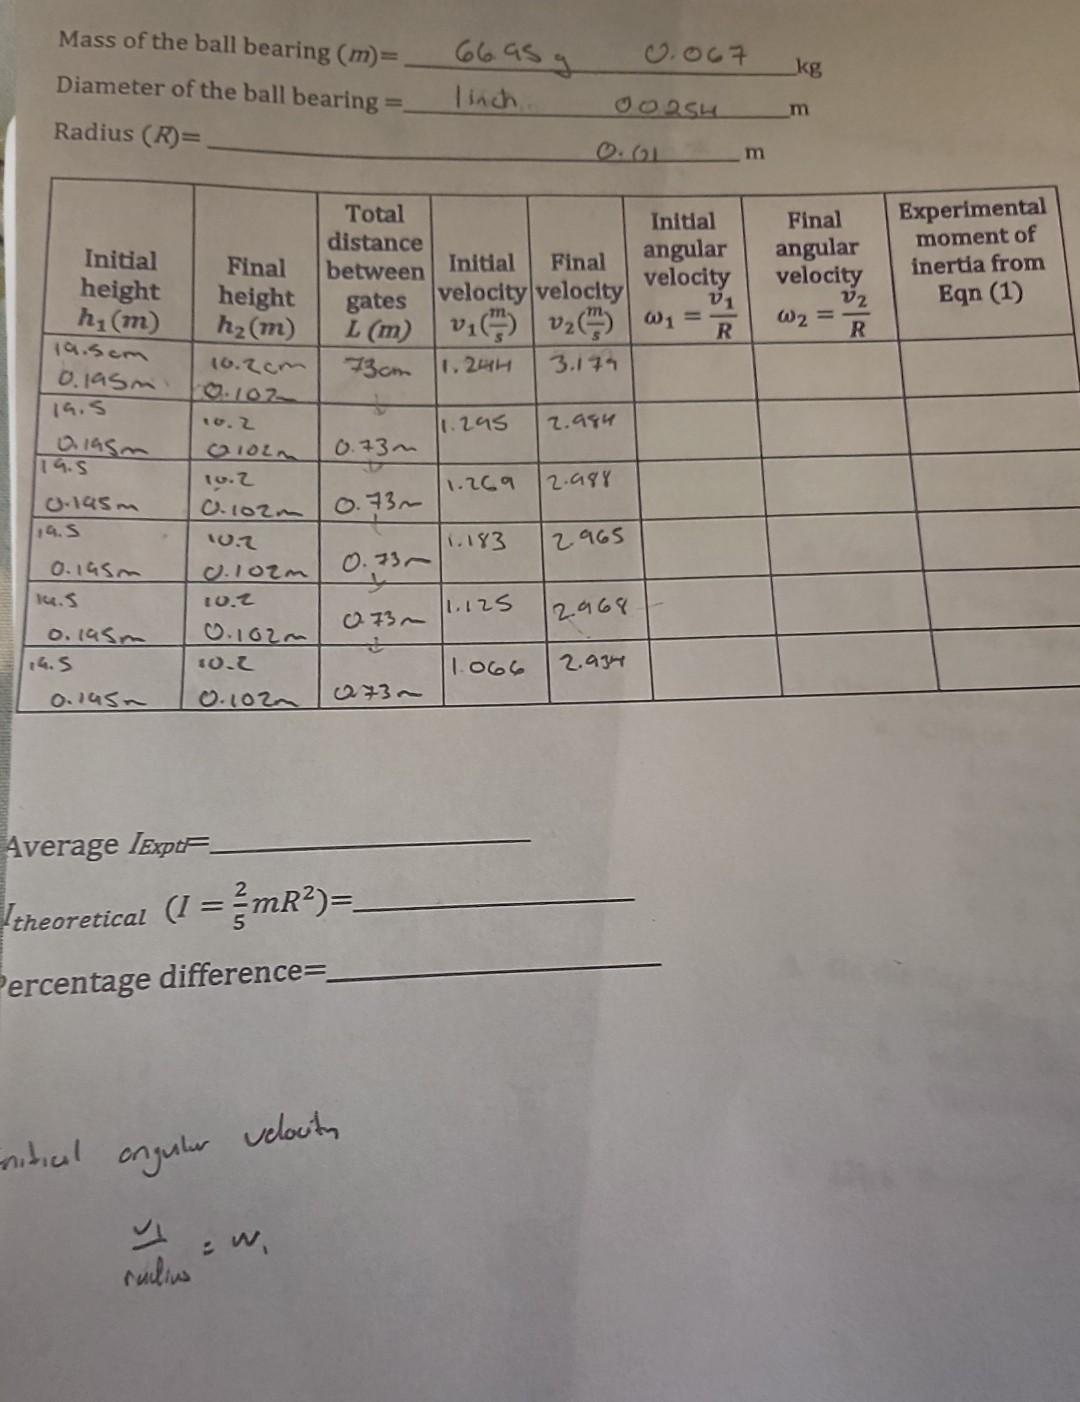 Mass of the ball bearing (m)= 66.95 g 0.067 kg
Diameter of the ball bearing = 1 inch 0.0254 m
Radius (R)= 0.01 m
Initial height h₁(m) Final height h₂(m) Total distance between gates L (m) Initial velocity v₁(m/s) Final velocity v₂(m/s) Initial angular velocity ω₁ = v₁/R Final angular velocity ω₂ = v₂/R Experimental moment of inertia from Eqn (1)
19.5cm 10.2cm 73cm 1.244 3.179
0.195m 0.102m
19.5 10.2 1.295 2.984
0.195m 0.102m 0.73m
19.5 10.2 1.269 2.988
0.195m 0.102m 0.73m
19.5 10.2 1.183 2.965
0.195m 0.102m 0.73m
19.5 10.2 1.125 2.968
0.195m 0.102m 0.73m
19.5 10.2 1.066 2.934
0.195m 0.102m 0.73m
Average I_Exptl=
I_theoretical (I = 2/5 mR²)=
Percentage difference=
initial angular velocity
v₁/radius = w₁